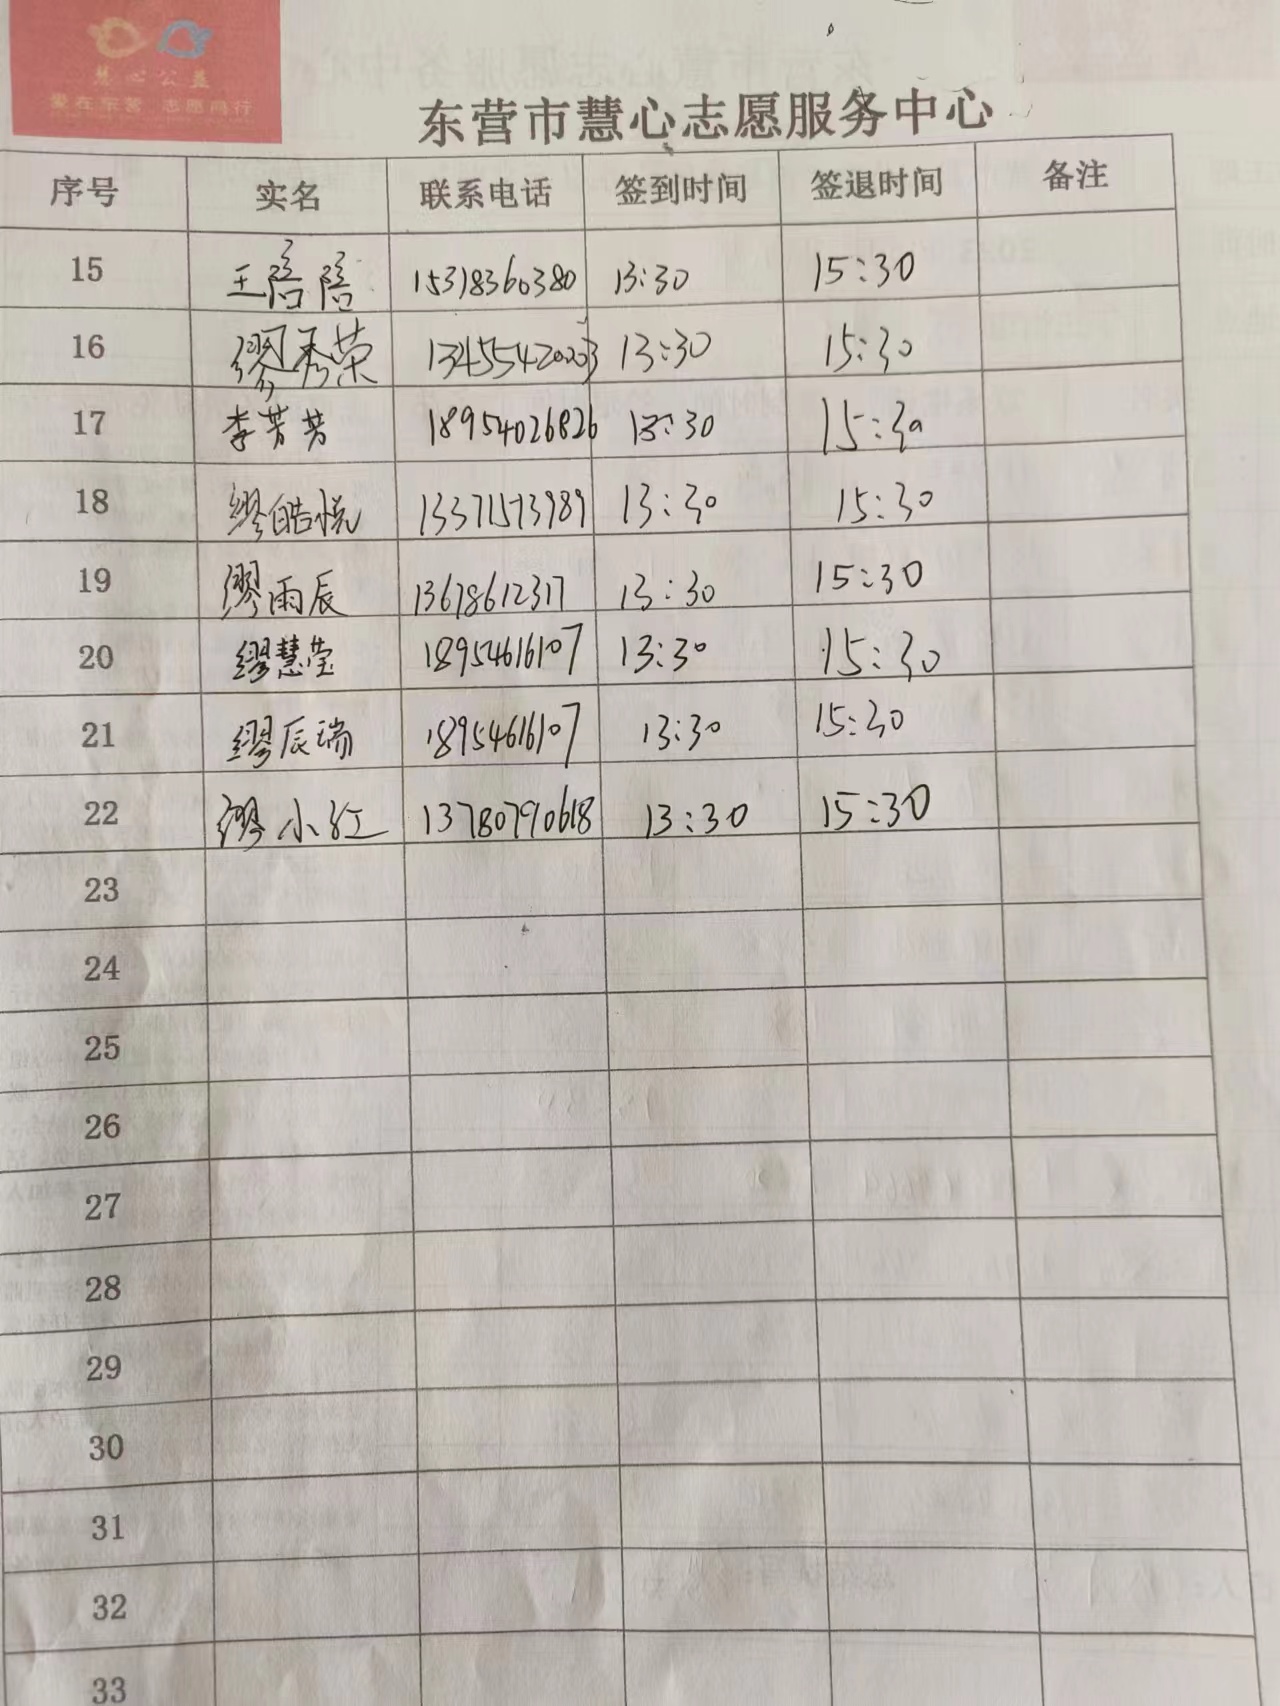 慧心公益
爱在东营 志愿同行
东营市慧心志愿服务中心
序号 实名 联系电话 签到时间 签退时间 备注
15 王陪陪 15318360380 13:30 15:30
16 缪秀荣 13:30 15:30
17 李芳芳 18954026826 13:30 15:30
18 缪皓悦 13371573989 13:30 15:30
19 缪雨辰 13678612317 13:30 15:30
20 缪慧莹 18954616107 13:30 15:30
21 缪辰瑞 18954616107 13:30 15:30
22 缪小红 13780790618 13:30 15:30
23
24
25
26
27
28
29
30
31
32
33